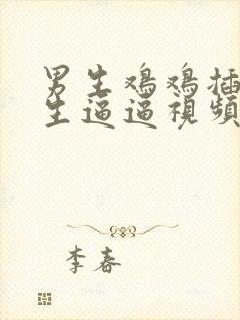 男生鸡鸡插
生逼逼視頻
李春